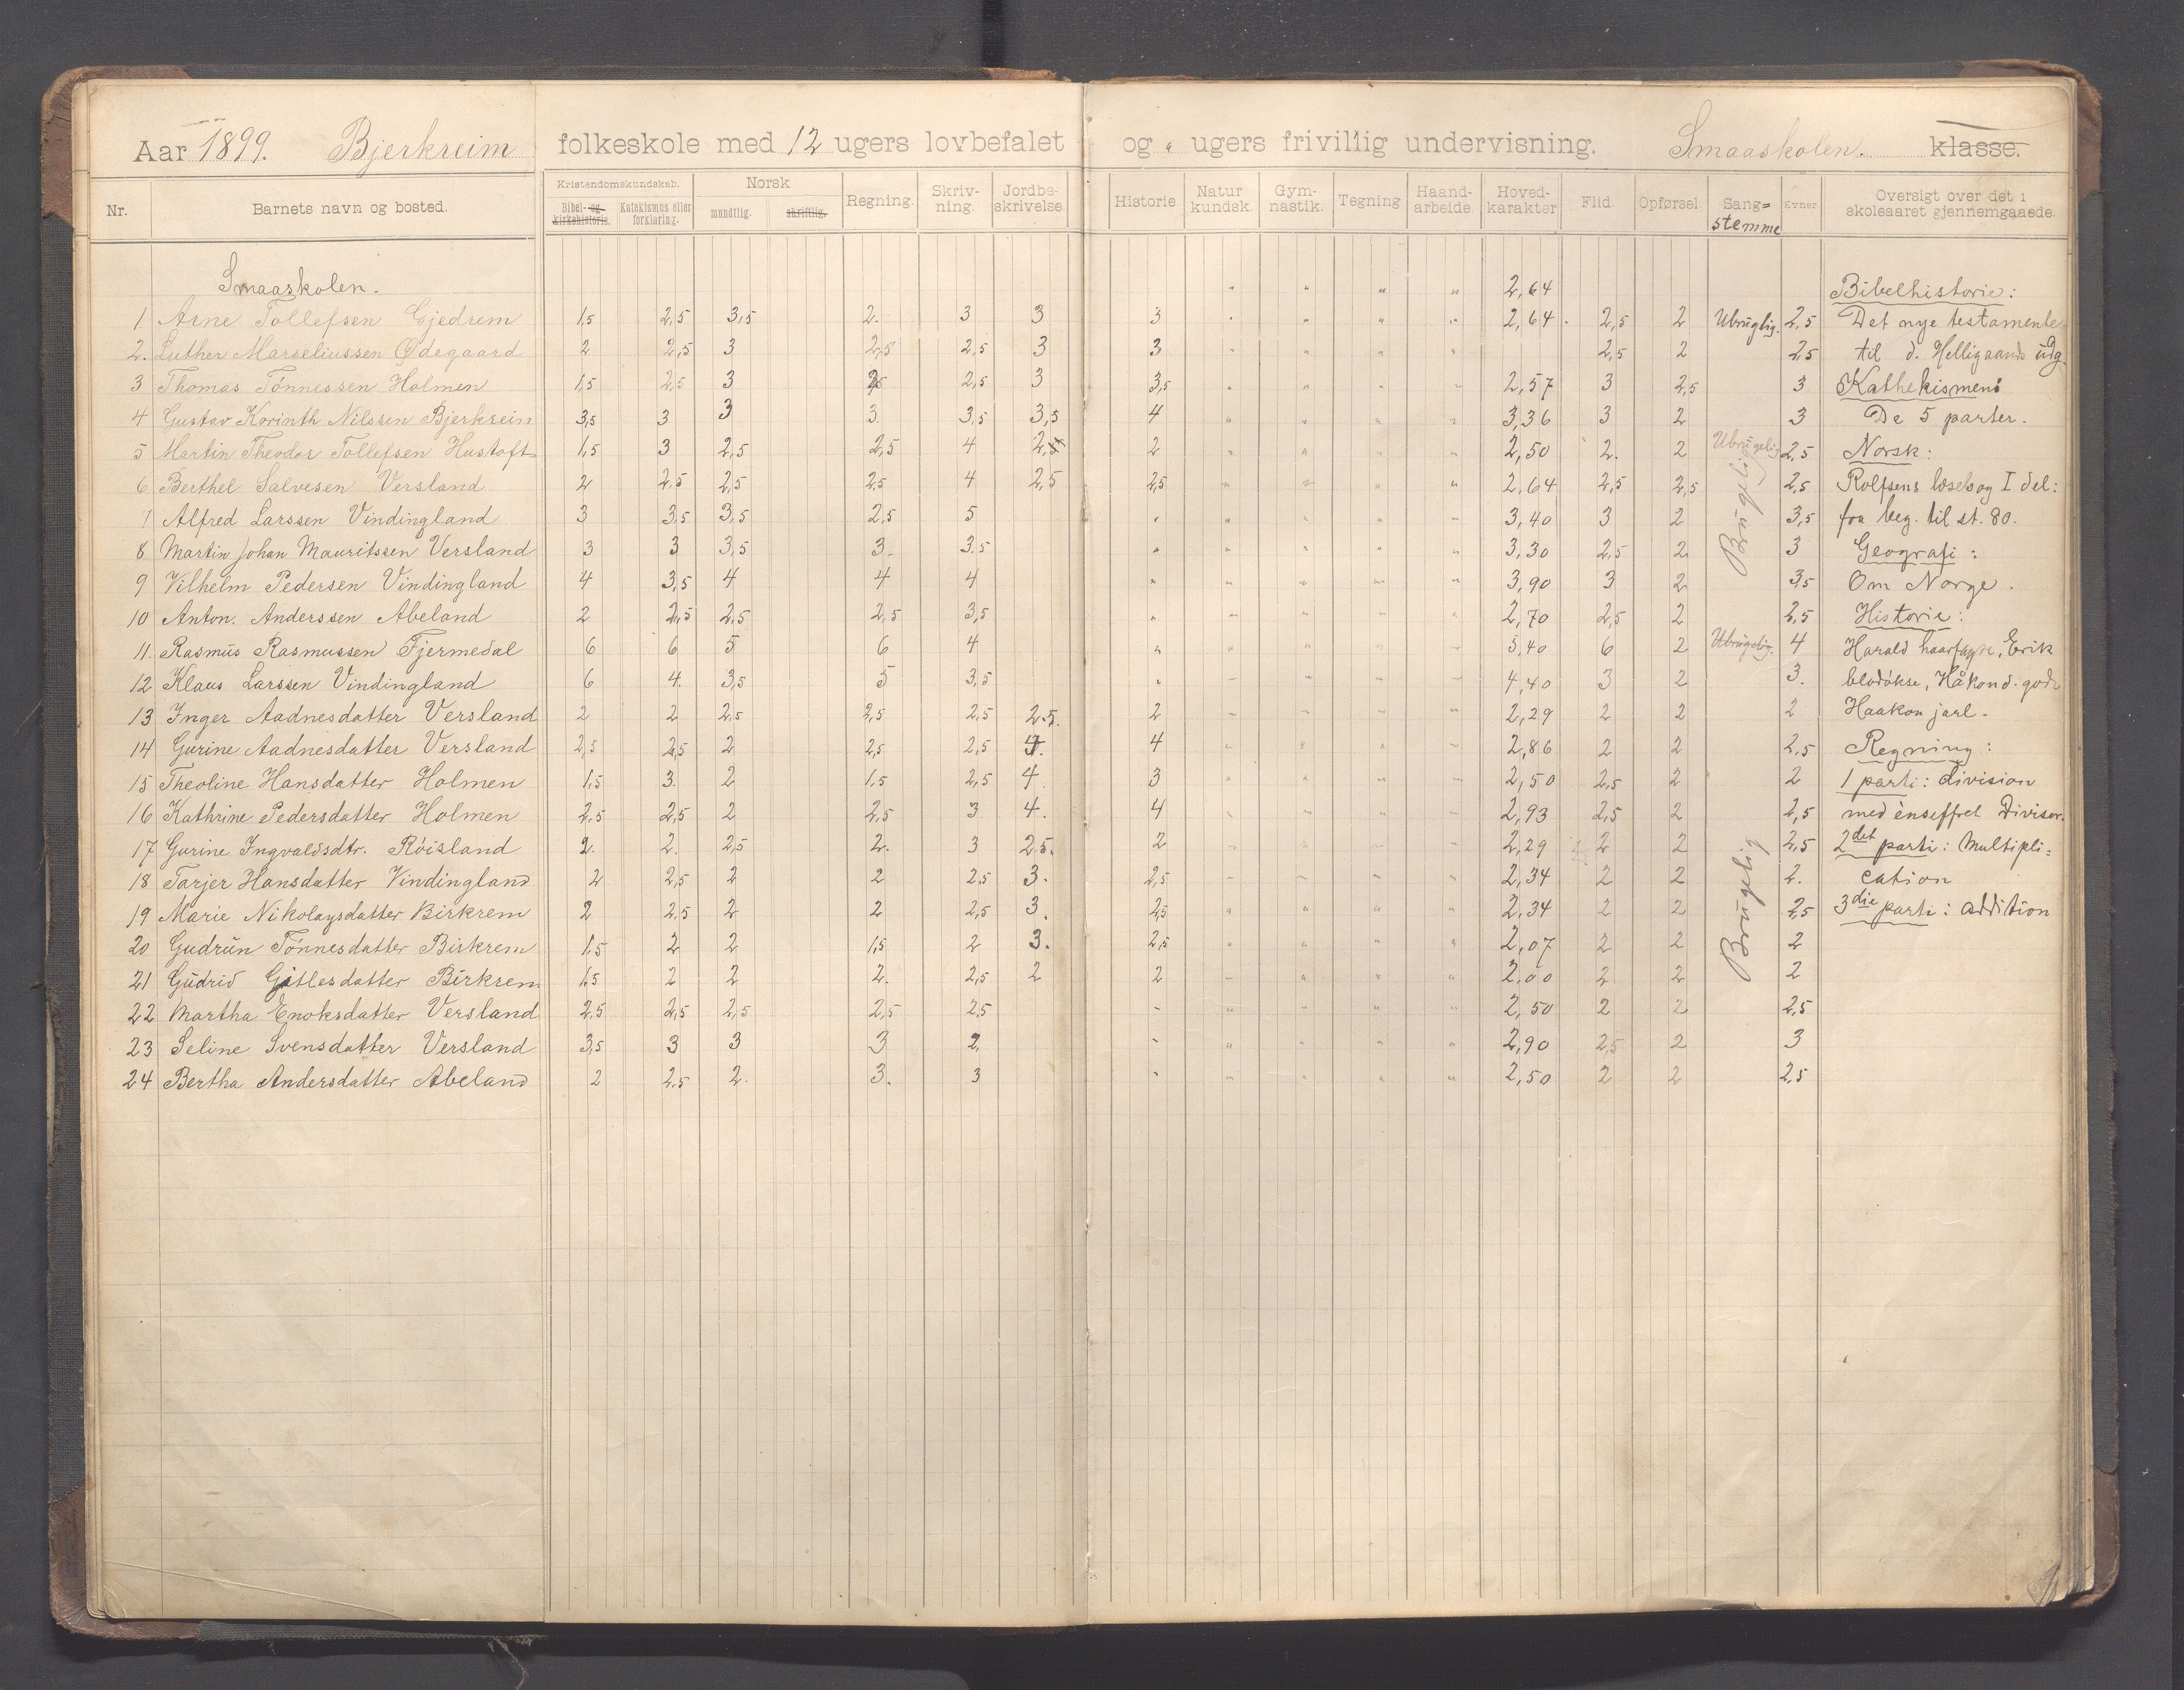 Aar 1899. Bjerkreim folkeskole med 12 ugers lovbefalet og " ugers frivillig undervisning. Smaaskolen. klasse.
Nr. Barnets navn og bosted. Kristendomskundskab. Bibel- og kirkehistorie. Katekismus eller forklaring. Norsk mundtlig. skriftlig. Regning. Skriv-ning. Jordbe-skrivelse. Historie. Natur kundsk. Gym-nastik. Tegning Haand-arbeide. Hoved-karakter Flid. Opførsel. Sang=stemme Evner. Oversigt over det i skoleaaret gjennemgaaede.
Smaaskolen. " " " " 2,64 Bibelhistorie:
1. Arne Tollefsen Gjedrem 1,5 2,5 3,5 2. 3 3 3 " " " " 2,64. 2,5 2 Ubruglig. 2,5 Det nye testamente
2. Luther Marseliussen Ødegaard 2 2,5 3 2,5 2,5 3 3 " " " " 2,5 2 2,5 til d. Helligaands udg.
3 Thomas Tönnessen Holmen 1,5 2,5 3 2,5 3 3,5 " " " " 2,57 3 2,5 3 Kathekismens
4 Gustav Korinth Nilssen Bjerkreim 3,5 3 3 3. 3,5 3,5 4 " " " " 3,36 3 2 3 De 5 parter.
5 Martin Theodor Tollefsen Hustoft 1,5 3 2,5 2,5 4 2 " " " " 2,50 2. 2 Ubrugelig 2,5 Norsk:
6 Berthel Salvesen Versland 2 2,5 2,5 2,5 4 2,5 2,5 " " " " 2,64 2,5 2,5 Brugelig 2,5 Rolfsens læsebog I del:
7 Alfred Larssen Vindingland 3 3,5 3,5 2,5 5 " " " " " 3,40 3 2 3,5 fra beg. til st. 80.
8 Martin Johan Mauritssen Versland 3 3 3,5 3. 3,5 " " " " " 3,30 2,5 2 3 Geografi:
9 Vilhelm Pedersen Vindingland 4 3,5 4 4 4 " " " " " 3,90 3 2 3,5 Om Norge.
10 Anton. Anderssen Abeland 2 2,5 2,5 2,5 3,5 " " " " " 2,70 2,5 2 2,5 Historie:
11. Rasmus Rasmussen Fjermedal 6 6 5 6 4 " " " " " 5,40 6 2 Ubrugelig. 4 Harald haarfagre, Erik
12 Klaus Larssen Vindingland 6 4. 3,5 5 3,5 " " " " " 4,40 3 2 3. blodökse, Håkon d. gode
13 Inger Aadnesdatter Versland 2 2 2,5 2,5 2,5 2,5. 2 " " " " 2,29 2 2 2 Haakon jarl.
14 Gurine Aadnesdatter Versland 2,5 2,5 2 2,5 2,5 4. 4 " " " " 2,86 2 2 2,5 Regning:
15 Theoline Hansdatter Holmen 1,5 3. 2 1,5 2,5 4 3 " " " " 2,50 2,5 2 2 1 parti: division
16 Kathrine Pedersdatter Holmen 2,5 2,5 2 2,5 3 4. 4 " " " " 2,93 2,5 2 2,5 med ènseffret Divisor.
17 Gurine Ingvaldsdtr. Röisland 2. 2. 2,5 2. 3 2,5. 2 " " " " 2,29 2 2 2,5 2det parti: Multipli=
18 Tarjer Hansdatter Vindingland 2 2,5 2 2 2,5 3. 2,5 " " " " 2,34 2 2 Brugelig 2. cation
19 Marie Nikolaysdatter Birkrem 2 2,5 2 2 2,5 3. 2,5 " " " " 2,34 2 2 2,5 3die parti: addition
20 Gudrun Tönnesdatter Birkrem 1,5 2 2 1,5 2 3. 2,5 " " " " 2,07 2 2 2
21 Gudrid Gitlesdatter Birkrem 1,5 2 2 2. 2,5 2 2 " " " " 2,00 2 2 2
22 Martha Enoksdatter Versland 2,5 2,5 2,5 2,5 2,5 " " " " " 2,50 2 2 2,5
23 Seline Svensdatter Versland 3,5 3 3 3 2 " " " " " 2,90 2,5 2 3
24 Bertha Andersdatter Abeland 2 2,5 2. 3. 3 " " " " " 2,50 2 2 2,5